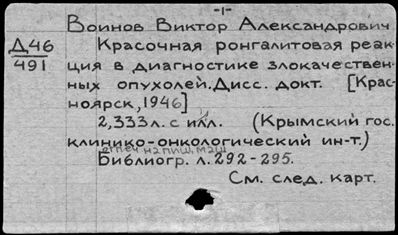 -1-
Воинов Виктор Александрович
Д46
491
Красочная ронгалитовая реак-
ция в диагностике злокачествен-
ных опухолей. Дисс. докт. [Крас-
ноярск, 1946]
2,333 л. с илл. (Крымский гос.
клинико-онкологический ин-т.)
отпеч на пиш. маш
Библиогр. л. 292-295.
См. след. карт.